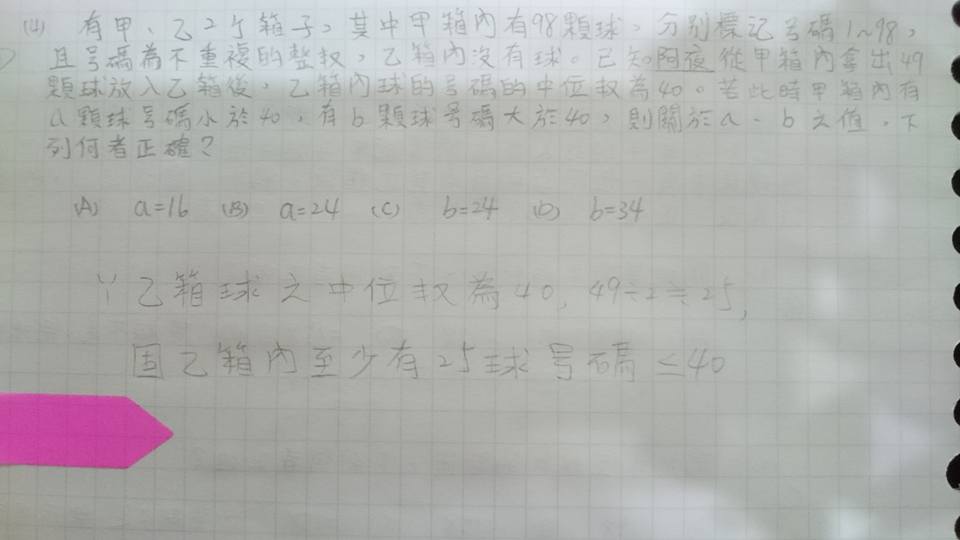 (4) 有甲、乙2个箱子，其中甲箱內有98顆球，分別標記号碼1~98，
且号碼為不重複的整數，乙箱內沒有球。已知阿夜從甲箱內拿出49
顆球放入乙箱後，乙箱內球的号碼的中位數為40。若此時甲箱內有
a顆球号碼小於40，有b顆球号碼大於40，則關於a、b之值，下
列何者正確？
(A) a=16 (B) a=24 (C) b=24 (D) b=34
乙箱球之中位數為40，49÷2≒25，
固乙箱內至少有25球号碼≤40